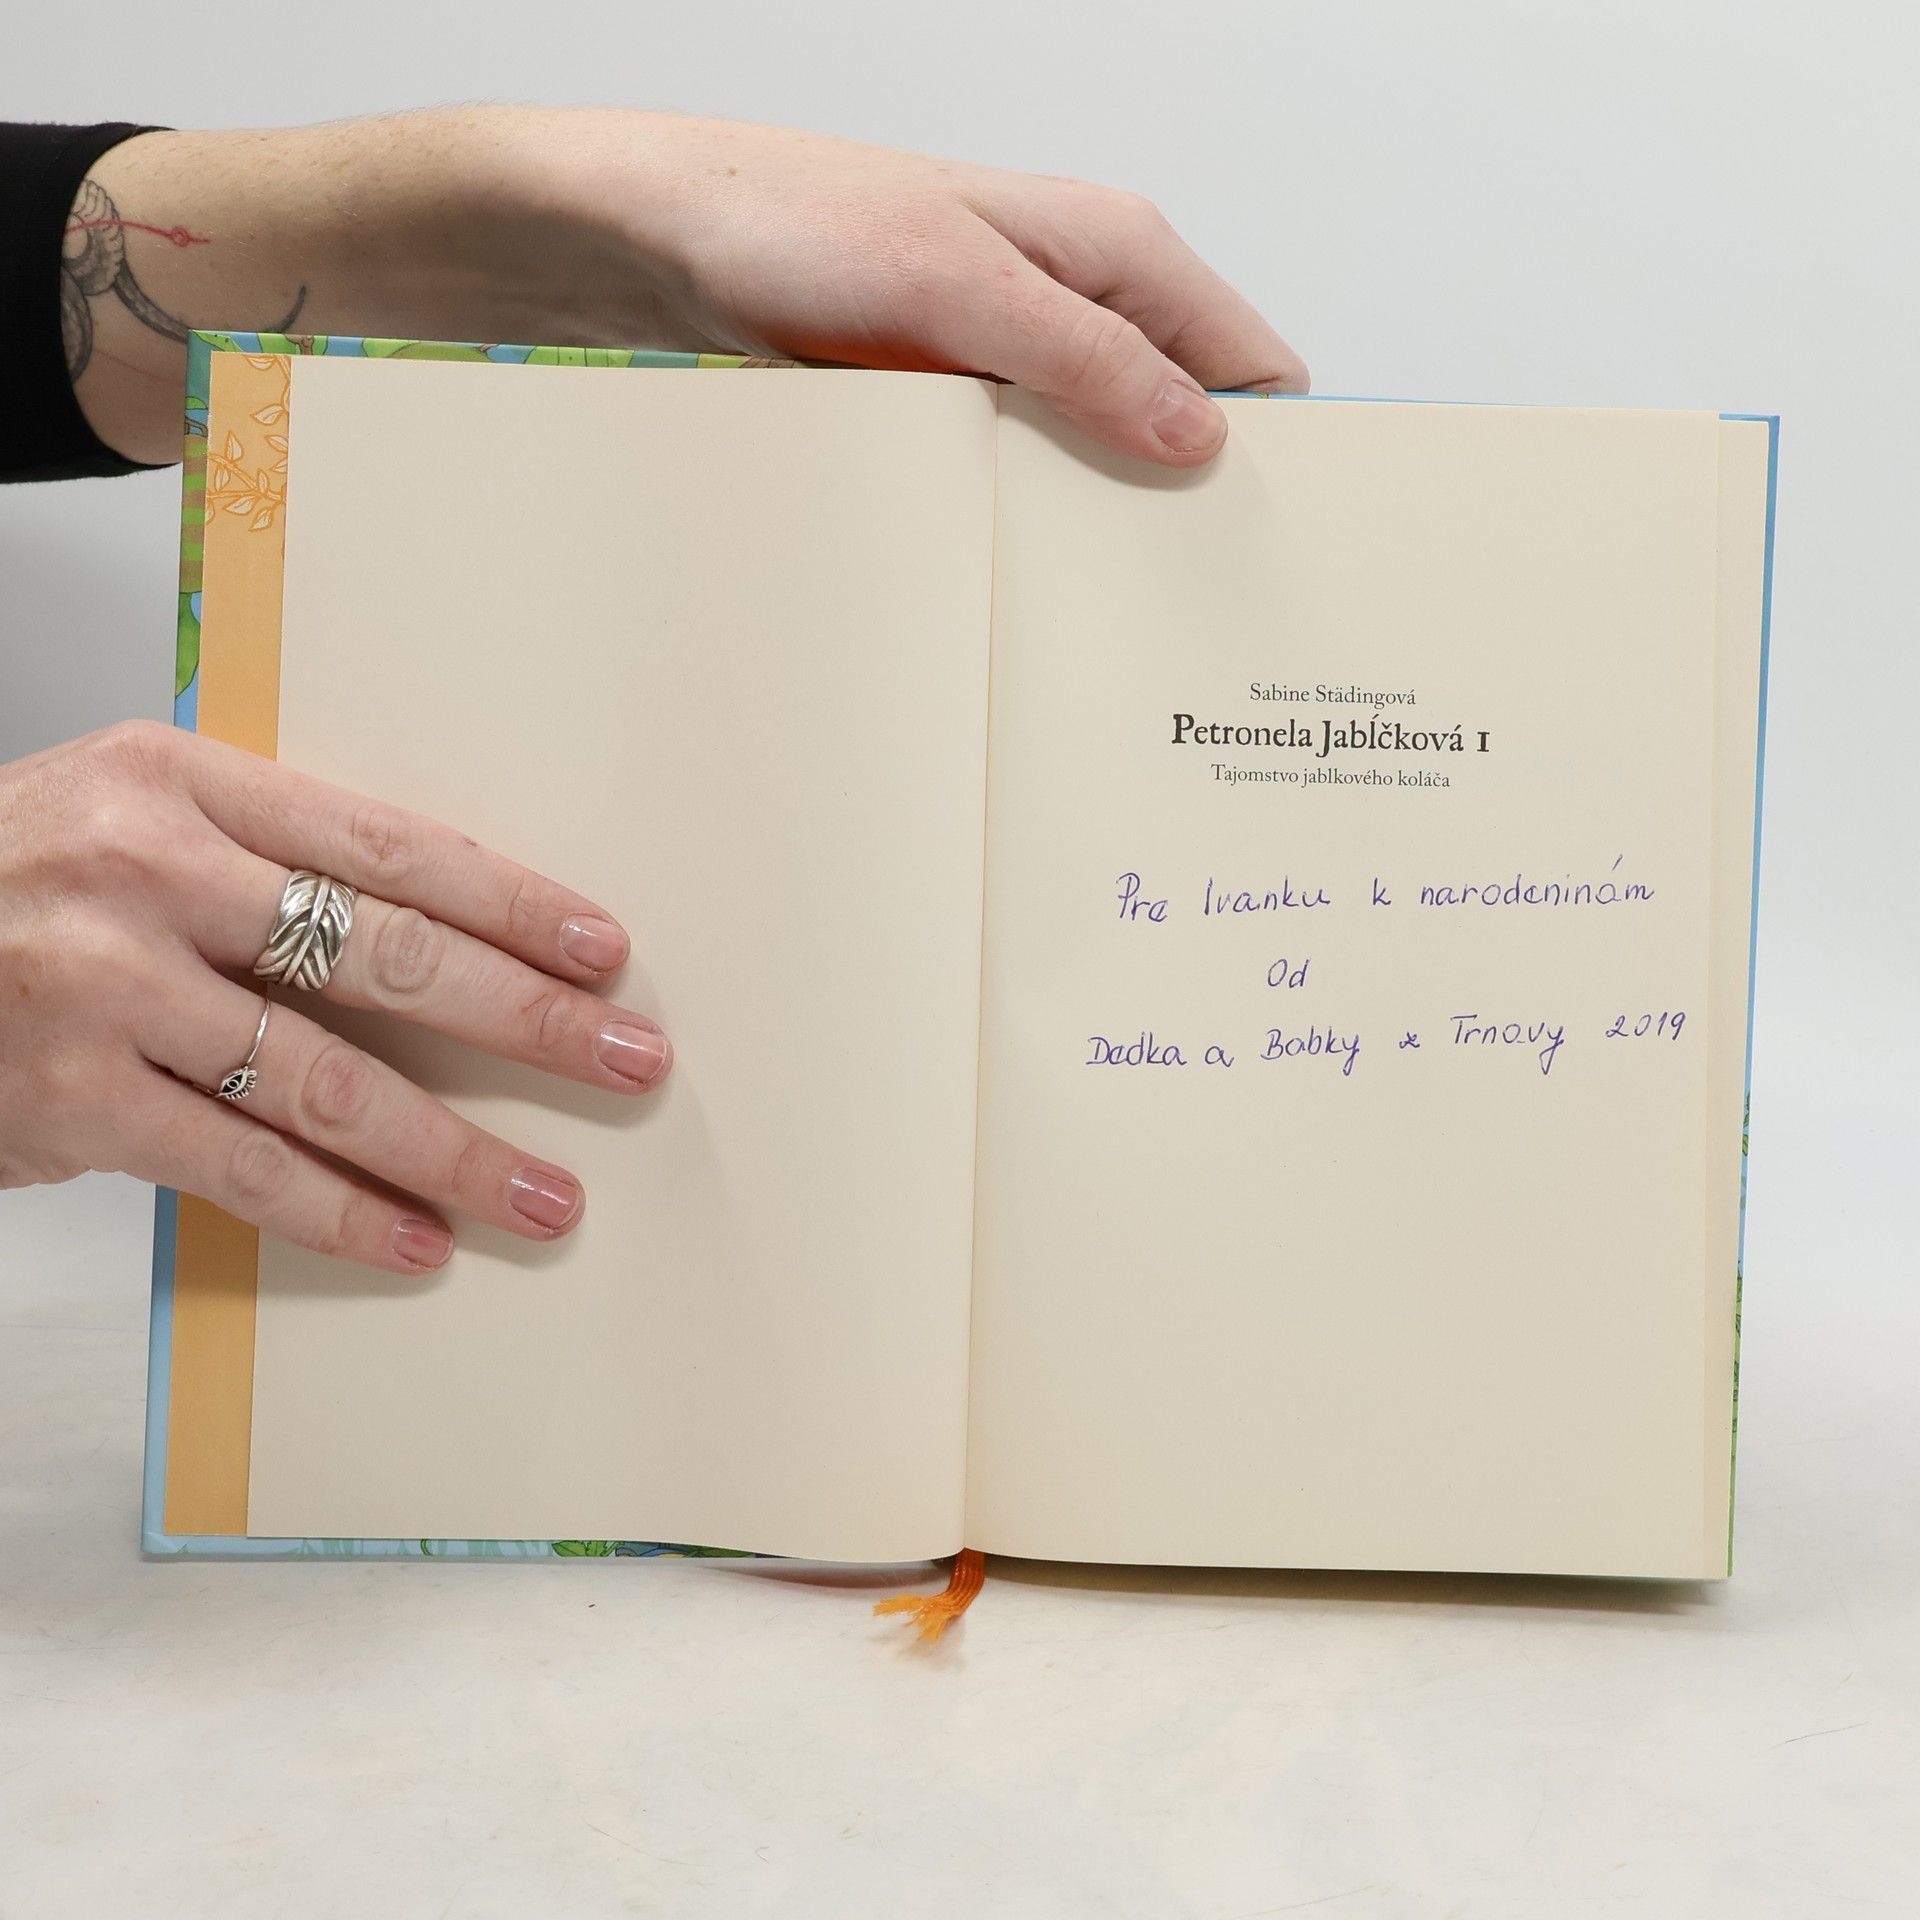 Sabine Städingová
Petronela Jabĺčková 1
Tajomstvo jablkového koláča
Pre Ivanku k narodeninám
Od
Dedka a Babky z Trnavy 2019